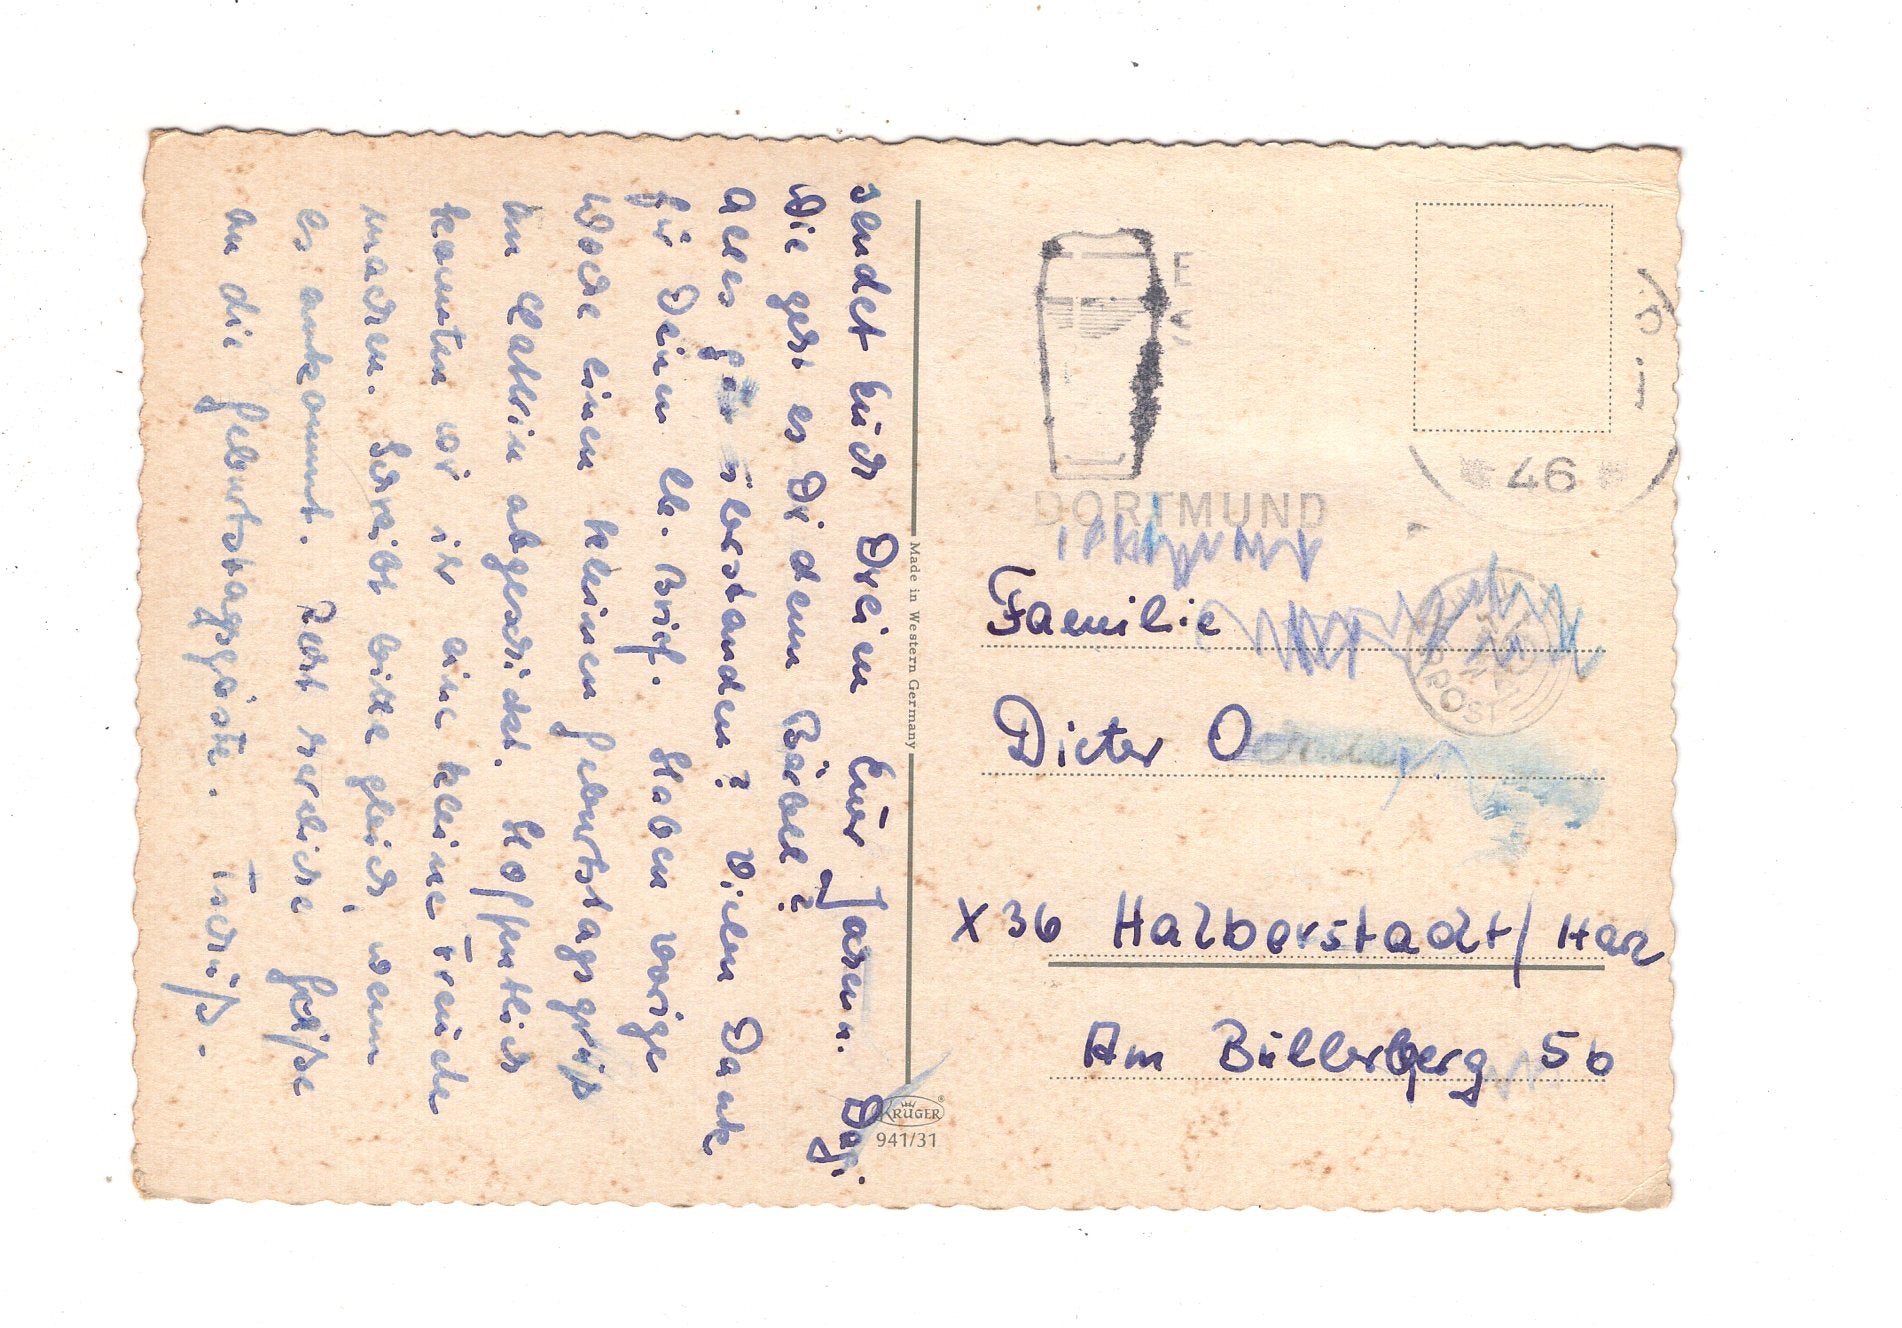 sendet Euch Dreien Eure
Wie geht es Dir denn Bärbel?
Alles gut überstanden? Vielen Dank
für Deinen lb. Brief. Haben vorige
Woche einen kleinen Geburtstagsgruß
an Kathrin abgeschickt. Hoffentlich
konnten wir ihr eine kleine Freude
machen. Schreibt bitte gleich, wenn
es ankommt. Recht herzliche Grüße
an die Geburtstagsgäste. Tschüß.
Made in Western Germany
KRÜGER
941/31
DORTMUND
46
POST
Familie
Dieter
X 36 Halberstadt/Harz
Am Bullerberg 5b